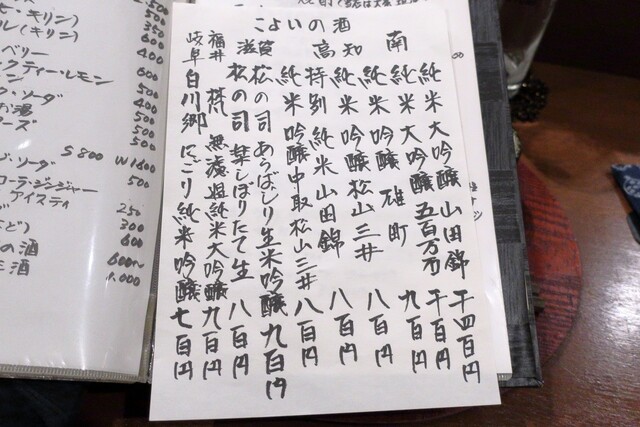 こよいの酒
南
高知
純米大吟醸 山田錦 千四百円
純米大吟醸 五百万石 千百円
純米吟醸 雄町 九百円
純米吟醸 松山三井 八百円
特別純米 山田錦 八百円
純米吟醸 中取 松山三井 八百円
滋賀
松の司 あらばしり生 米吟醸 九百円
松の司 楽 しぼりたて生 八百円
福井 梵 無濾過純米大吟醸 九百円
岐阜 白川郷 にごり純米吟醸 七百円
ル(キリン)
ベリー
ックティーレモン
ソーダ
お湯
S800 W1600
ソーダ 500
コーラ・ジンジャー
アイスティ
250
300
の酒 600
酒 600〜
1,000